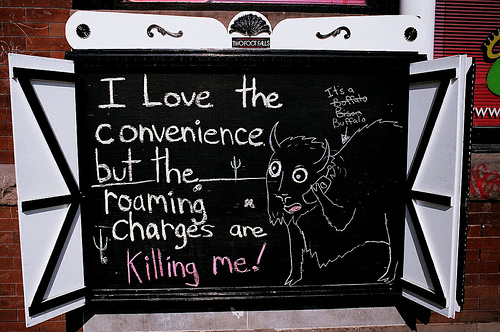 TWO FOOT FALLS
I Love the
convenience
but the
roaming
charges are
Killing me!
It's a
Buffalo
Bison
Buffalo
WW